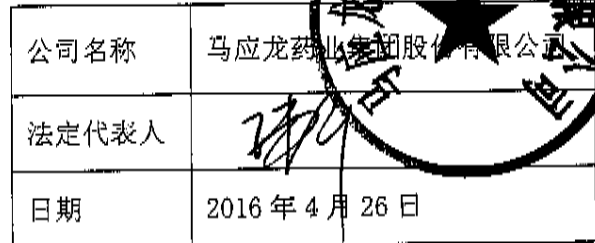 公司名称 马应龙药业集团股份有限公司
法定代表人
日期 2016 年 4 月 26 日